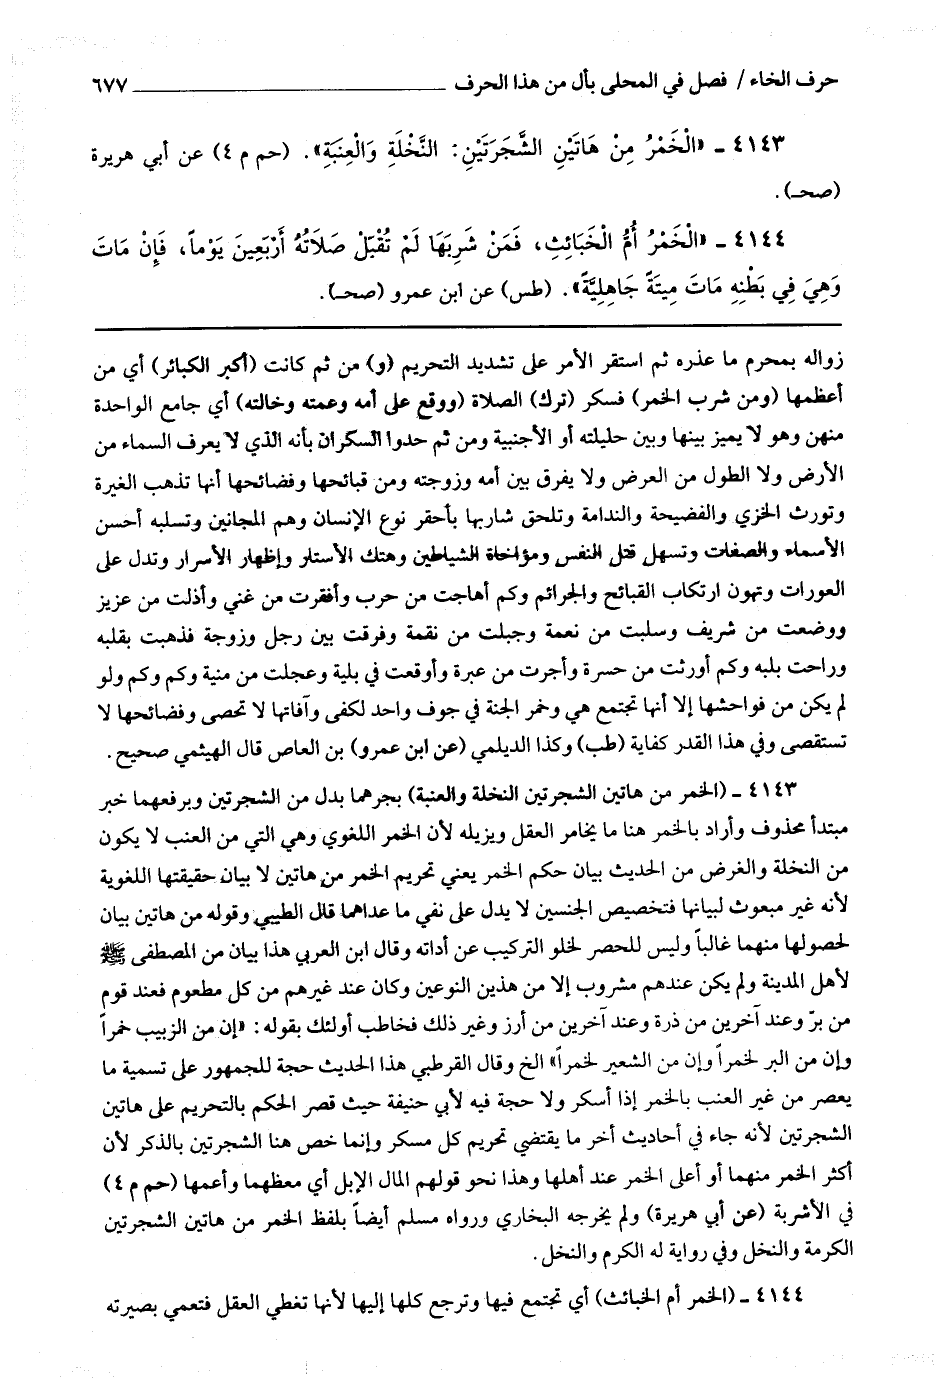 حرف الخاء / فصل في المحلى بأل من هذا الحرف ــــــــــــــــــــ ٦٧٧
٤١٤٣ ـ «الْخَمْرُ مِنْ هَاتَيْنِ الشَّجَرَتَيْنِ: النَّخْلَةِ وَالْعِنَبَةِ». (حم م ٤) عن أبي هريرة
(صحـ).
٤١٤٤ ـ «الْخَمْرُ أُمُّ الْخَبَائِثِ، فَمَنْ شَرِبَهَا لَمْ تُقْبَلْ صَلَاتُهُ أَرْبَعِينَ يَوْماً، فَإِنْ مَاتَ
وَهِيَ فِي بَطْنِهِ مَاتَ مِيتَةً جَاهِلِيَّةً». (طس) عن ابن عمرو (صحـ).
زواله بمحرم ما عذره ثم استقر الأمر على تشديد التحريم (و) من ثم كانت (أكبر الكبائر) أي من
أعظمها (ومن شرب الخمر) فسكر (ترك) الصلاة (ووقع على أمه وعمته وخالته) أي جامع الواحدة
منهن وهو لا يميز بينها وبين حليلته أو الأجنبية ومن ثم حدوا السكران بأنه الذي لا يعرف السماء من
الأرض ولا الطول من العرض ولا يفرق بين أمه وزوجته ومن قبائحها وفضائحها أنها تذهب الغيرة
وتورث الخزي والفضيحة والندامة وتلحق شاربها بأحقر نوع الإنسان وهم المجانين وتسلبه أحسن
الأسماء والصفات وتسهل قتل النفس ومؤاخاة الشياطين وهتك الأستار وإظهار الأسرار وتدل على
العورات وتهون ارتكاب القبائح والجرائم وكم أهاجت من حرب وأفقرت من غني وأذلت من عزيز
ووضعت من شريف وسلبت من نعمة وجبلت من نقمة وفرقت بين رجل وزوجة فذهبت بقلبه
وراحت بلبه وكم أورثت من حسرة وأجرت من عبرة وأوقعت في بلية وعجلت من منية وكم وكم ولو
لم يكن من فواحشها إلا أنها تجتمع هي وخمر الجنة في جوف واحد لكفى وآفاتها لا تحصى وفضائحها لا
تستقصى وفي هذا القدر كفاية (طب) وكذا الديلمي (عن ابن عمرو) بن العاص قال الهيثمي صحيح.
٤١٤٣ ـ (الخمر من هاتين الشجرتين النخلة والعنبة) بجرهما بدل من الشجرتين وبرفعهما خبر
مبتدأ محذوف وأراد بالخمر هنا ما يخامر العقل ويزيله لأن الخمر اللغوي وهي التي من العنب لا يكون
من النخلة والغرض من الحديث بيان حكم الخمر يعني تحريم الخمر من هاتين لا بيان حقيقتها اللغوية
لأنه غير مبعوث لبيانها فتخصيص الجنسين لا يدل على نفي ما عداهما قال الطيبي وقوله من هاتين بيان
لحصولها منهما غالباً وليس للحصر لخلو التركيب عن أداته وقال ابن العربي هذا بيان من المصطفى ﷺ
لأهل المدينة ولم يكن عندهم مشروب إلا من هذين النوعين وكان عند غيرهم من كل مطعوم فعند قوم
من برّ وعند آخرين من ذرة وعند آخرين من أرز وغير ذلك فخاطب أولئك بقوله: «إن من الزبيب خمراً
وإن من البر لخمراً وإن من الشعير لخمراً» الخ وقال القرطبي هذا الحديث حجة للجمهور على تسمية ما
يعصر من غير العنب بالخمر إذا أسكر ولا حجة فيه لأبي حنيفة حيث قصر الحكم بالتحريم على هاتين
الشجرتين لأنه جاء في أحاديث أخر ما يقتضي تحريم كل مسكر وإنما خص هنا الشجرتين بالذكر لأن
أكثر الخمر منهما أو أعلى الخمر عند أهلها وهذا نحو قولهم المال الإبل أي معظهما وأعمها (حم م ٤)
في الأشربة (عن أبي هريرة) ولم يخرجه البخاري ورواه مسلم أيضاً بلفظ الخمر من هاتين الشجرتين
الكرمة والنخل وفي رواية له الكرم والنخل.
٤١٤٤ ـ (الخمر أم الخبائث) أي تجتمع فيها وترجع كلها إليها لأنها تغطي العقل فتعمي بصيرته